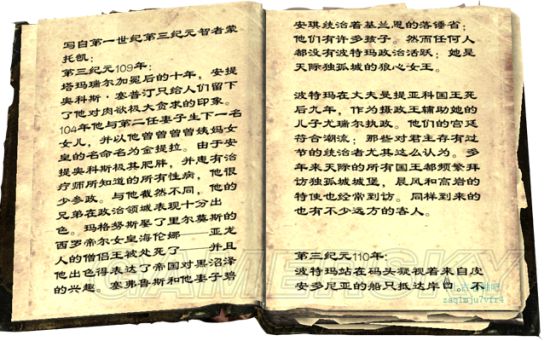 写自第一世纪第三纪元智者蒙
托凯:
第三纪元109年:
塔玛瑞尔加冕后的十年,安提
奥科斯·塞普汀只给人们留下
了他对肉欲极大贪求的印象。
104年他与第二任妻子生下一名
女儿,并以他曾曾曾曾姨妈女
皇的名命名为金提拉。由于安
提奥科斯极其肥胖,并患有治
疗师所知道的所有性病,他很
少参政。与他截然不同,他的
兄弟在政治领域表现十分出
色。玛格努斯娶了里尔莫斯的
西罗帝尔女皇海伦娜——亚龙
人的僧侣王被处死了——并且
他出色得表达了帝国对黑沼泽
的兴趣。塞弗鲁斯和他妻子碧
安琪统治着基兰恩的落锤省;
他们有许多孩子。然而任何人
都没有波特玛政治活跃;她是
天际独孤城的狼心女王。
波特玛在丈夫曼提亚科国王死
后九年,作为摄政王辅助她的
儿子尤瑞尔执政。他们的宫廷
符合潮流;那些对君主存有过
节的统治者尤其这么认为。多
年来天际的所有国王都频繁拜
访独孤城城堡,晨风和高岩的
特使也经常到访。同样到来的
也有不少远方的客人。
第三纪元110年:
波特玛站在码头凝视着来自皮
安多尼亚的船只抵达岸口。不
GAMERSKY
zaq1mju7vfr4